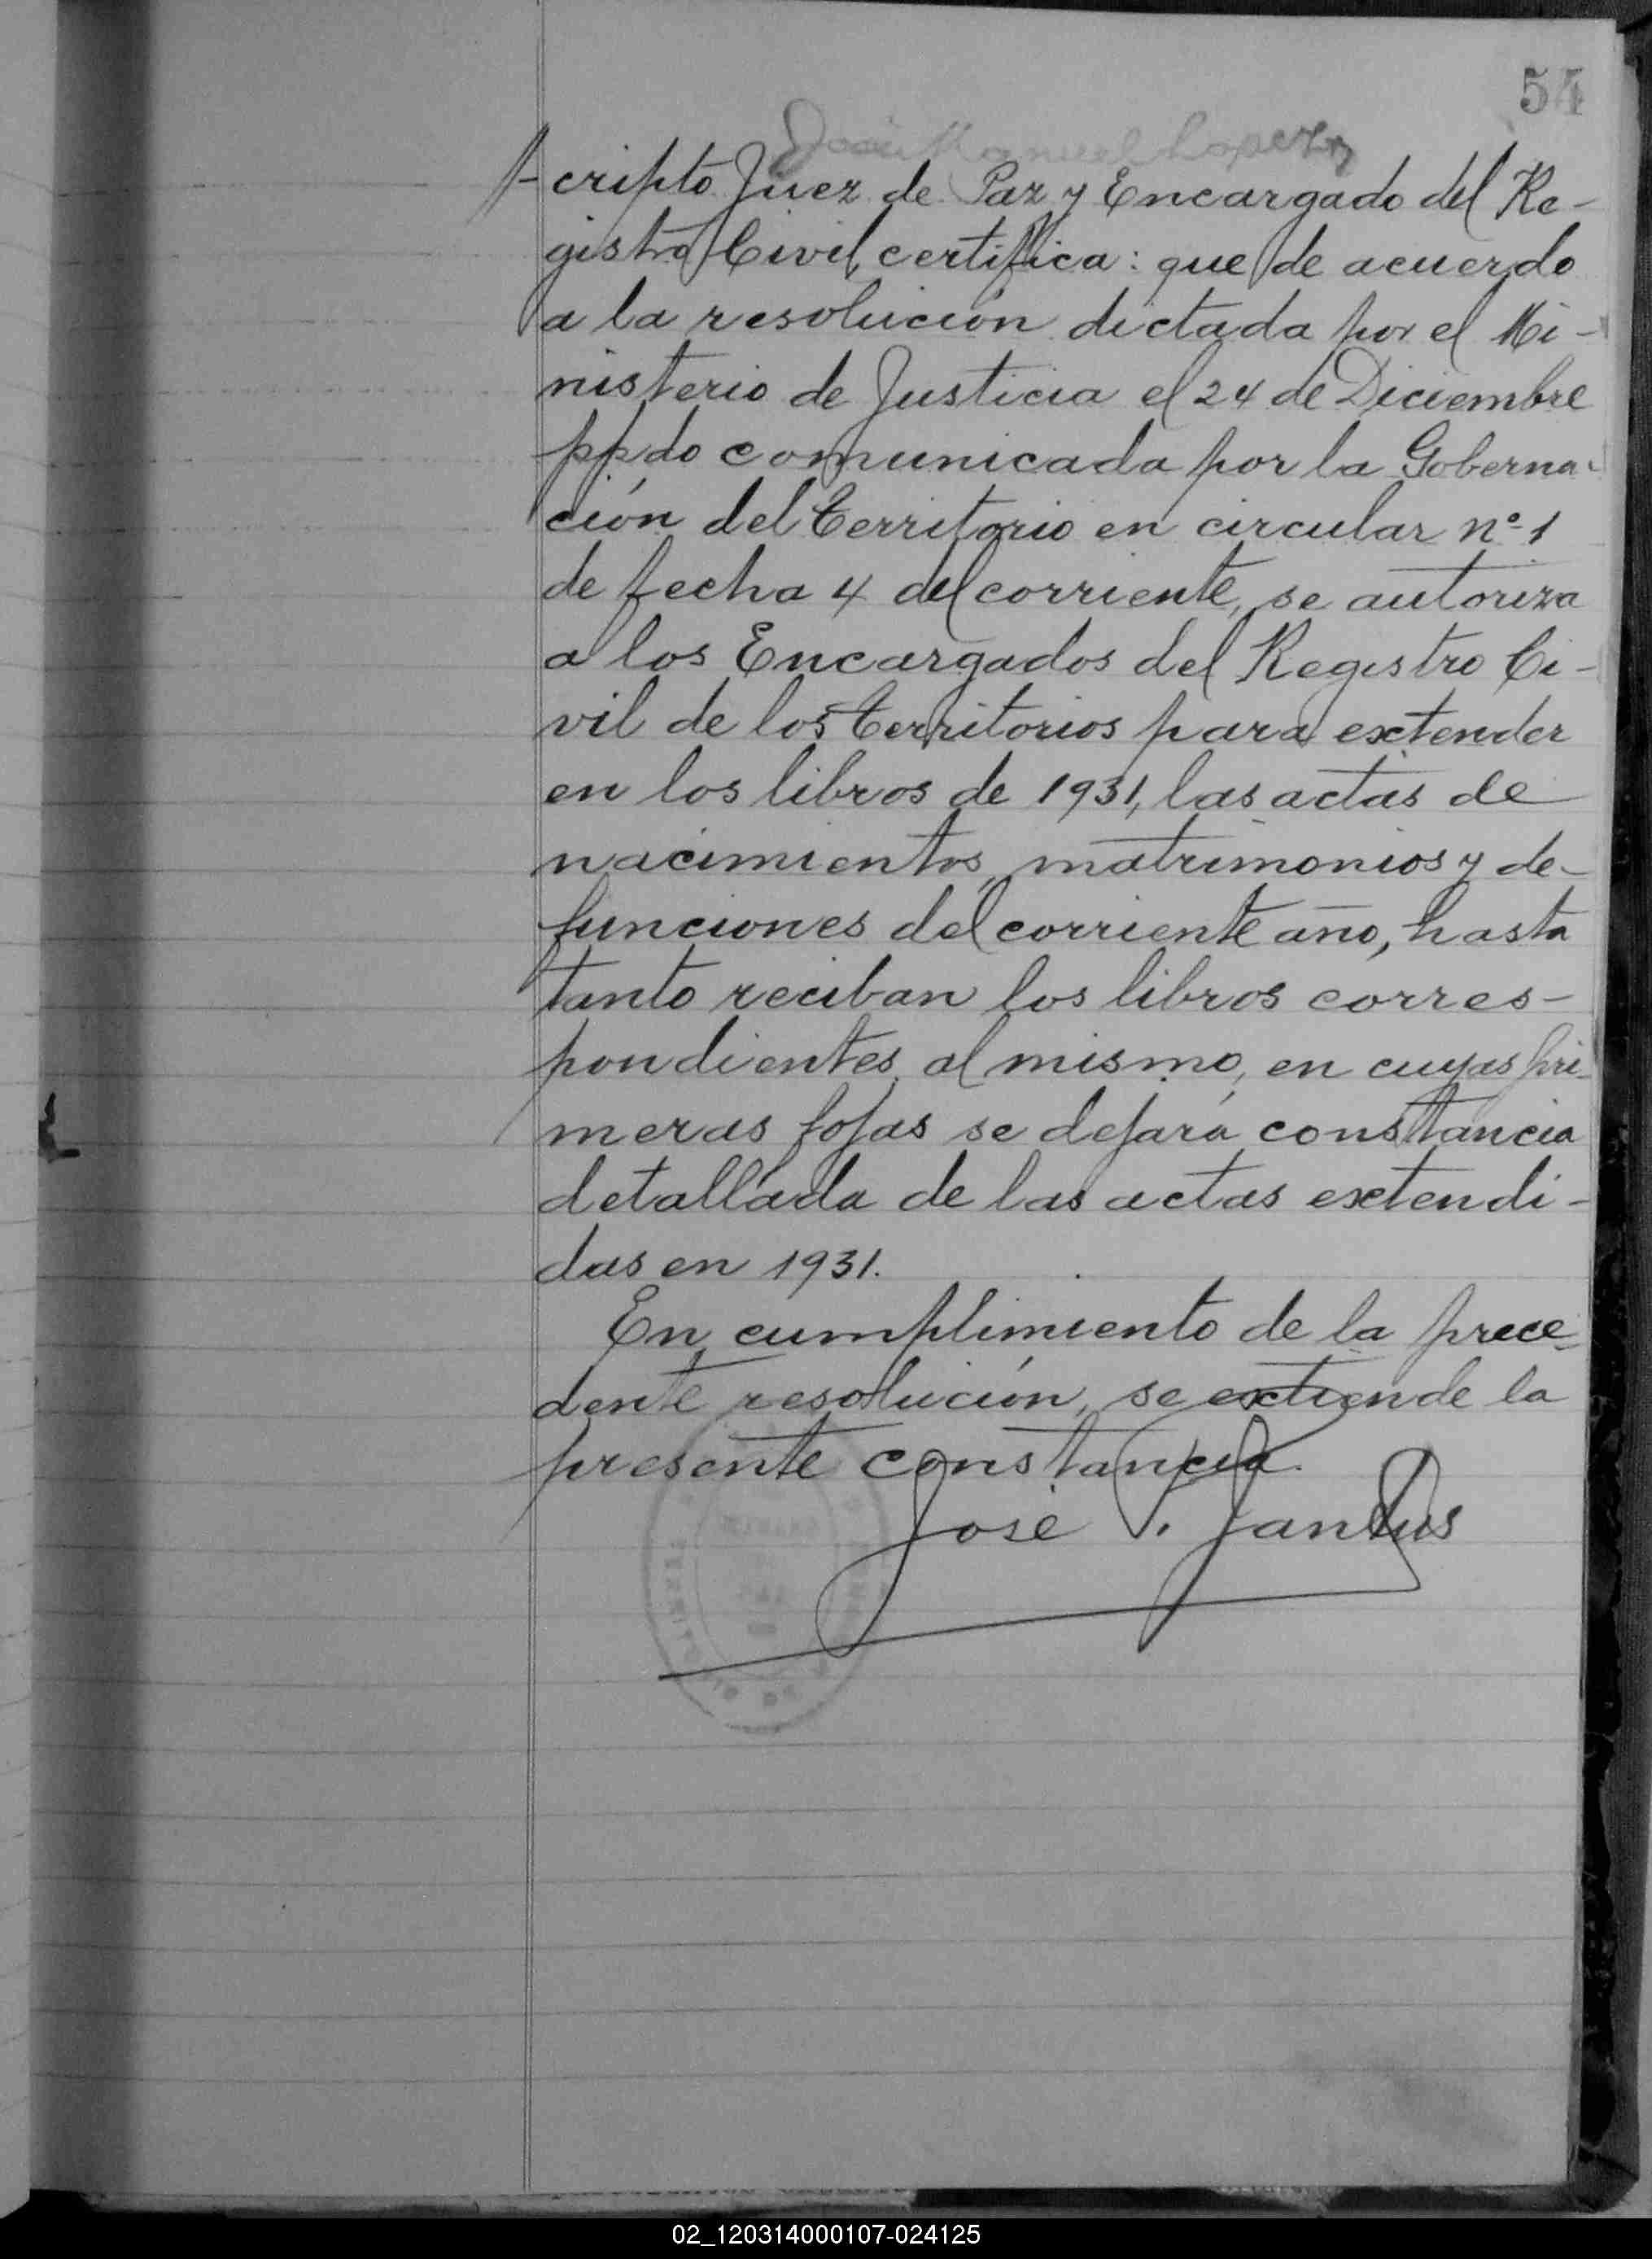 54
Manuel Lopez
cripto Juez de Paz y Encargado del Re-
gistro Civil, certifica: que de acuerdo
a la resolución dictada por el Mi-
nisterio de Justicia el 24 de Diciembre
ppdo comunicada por la Goberna-
ción del Territorio en circular nº 1
de fecha 4 del corriente, se autoriza
a los Encargados del Registro Ci-
vil de los Territorios para extender
en los libros de 1931, las actas de
nacimientos, matrimonios y de-
funciones del corriente año, hasta
tanto reciban los libros corres-
pondientes al mismo, en cuyas pri-
meras fojas se dejará constancia
detallada de las actas extendi-
das en 1931.
En cumplimiento de la prece-
dente resolución, se extiende la
presente constancia.
José V.
02_120314000107-024125